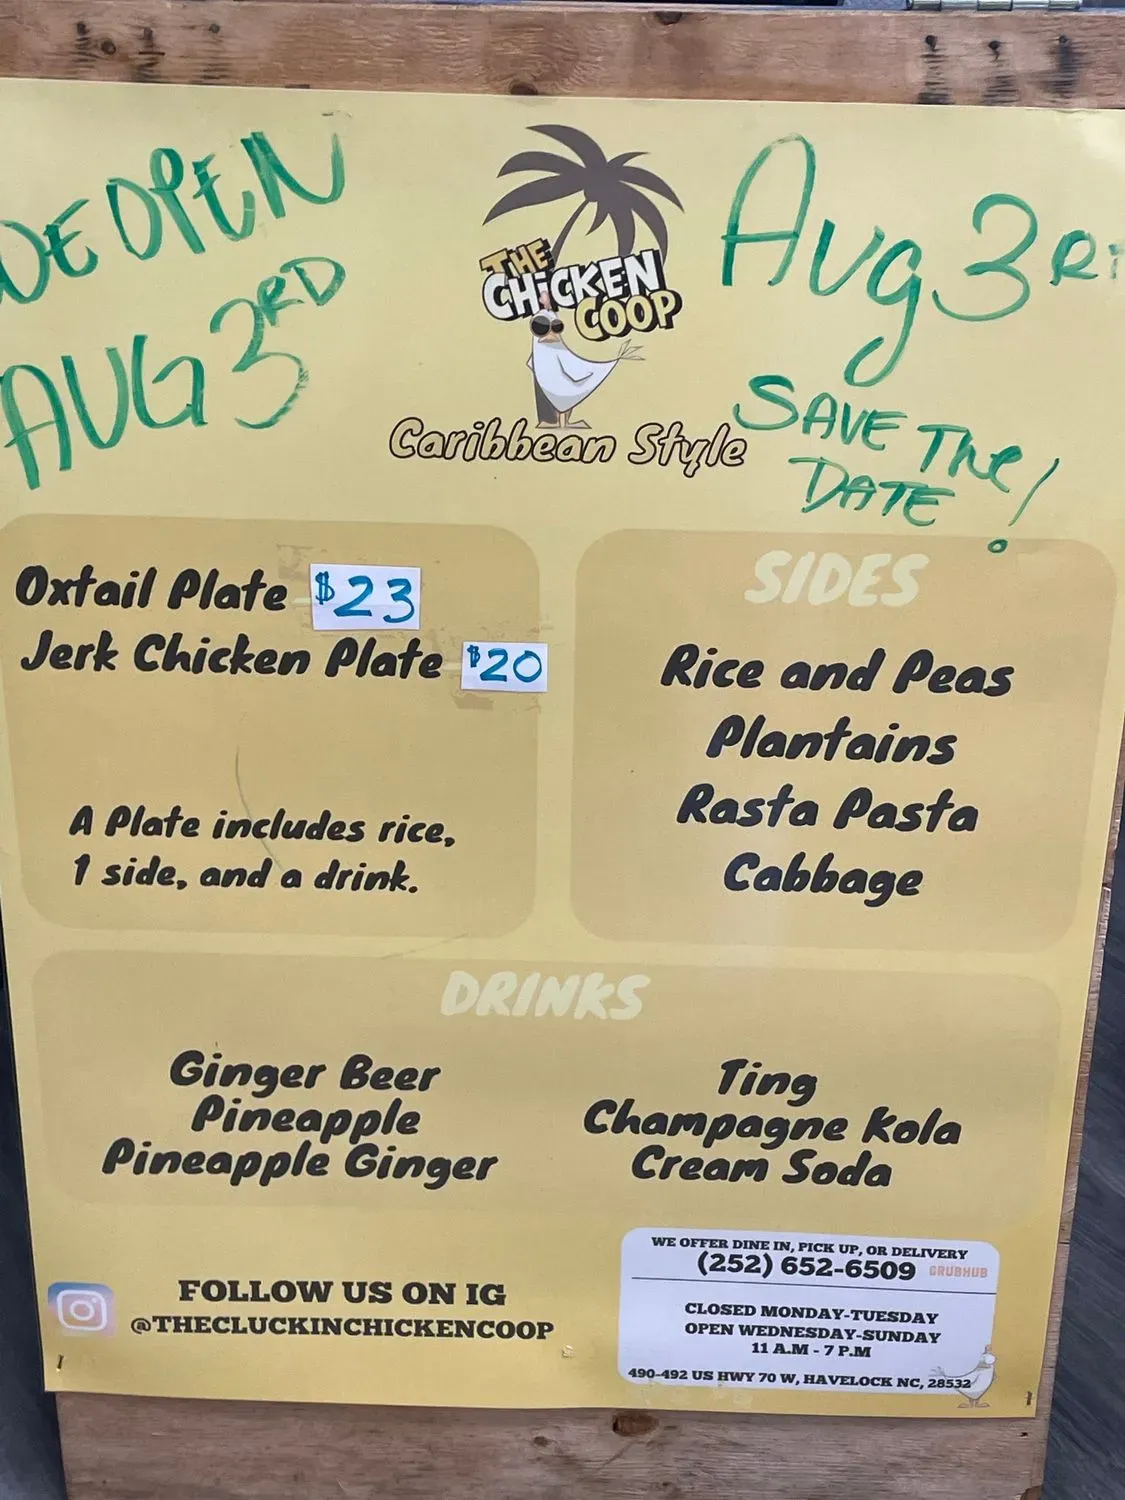 WE OPEN
AUG 3RD
THE
CHiCKEN
COOP
Caribbean Style
Aug 3R
SAVE THE
DATE !
Oxtail Plate $23
Jerk Chicken Plate $20
A Plate includes rice,
1 side, and a drink.
SIDES
Rice and Peas
Plantains
Rasta Pasta
Cabbage
DRINKS
Ginger Beer
Pineapple
Pineapple Ginger
Ting
Champagne Kola
Cream Soda
FOLLOW US ON IG
@THECLUCKINCHICKENCOOP
WE OFFER DINE IN, PICK UP, OR DELIVERY
(252) 652-6509 GRUBHUB
CLOSED MONDAY-TUESDAY
OPEN WEDNESDAY-SUNDAY
11 A.M - 7 P.M
490-492 US HWY 70 W, HAVELOCK NC, 28532